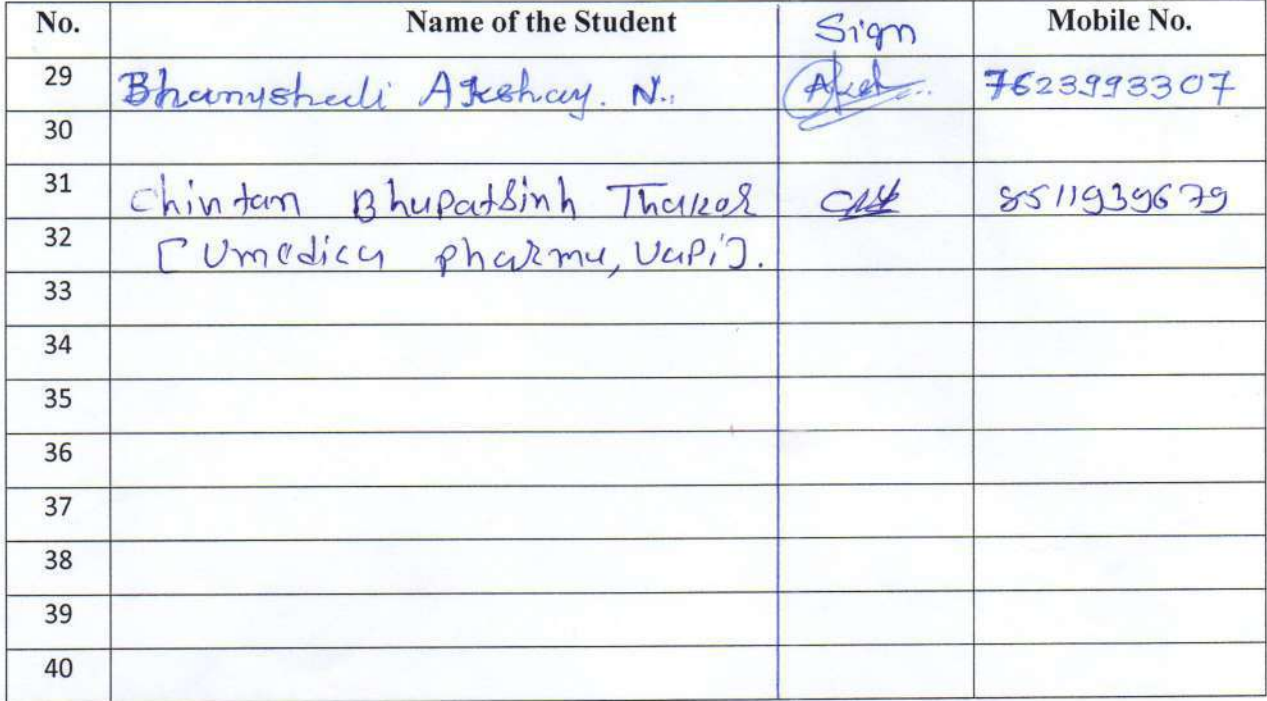 No. Name of the Student Sign Mobile No.
29 Bhanushali Akshay. N. 7623993307
30
31 Chintan Bhupatsinh Thakor 8511939679
32 [Umedica pharma, Vapi].
33
34
35
36
37
38
39
40